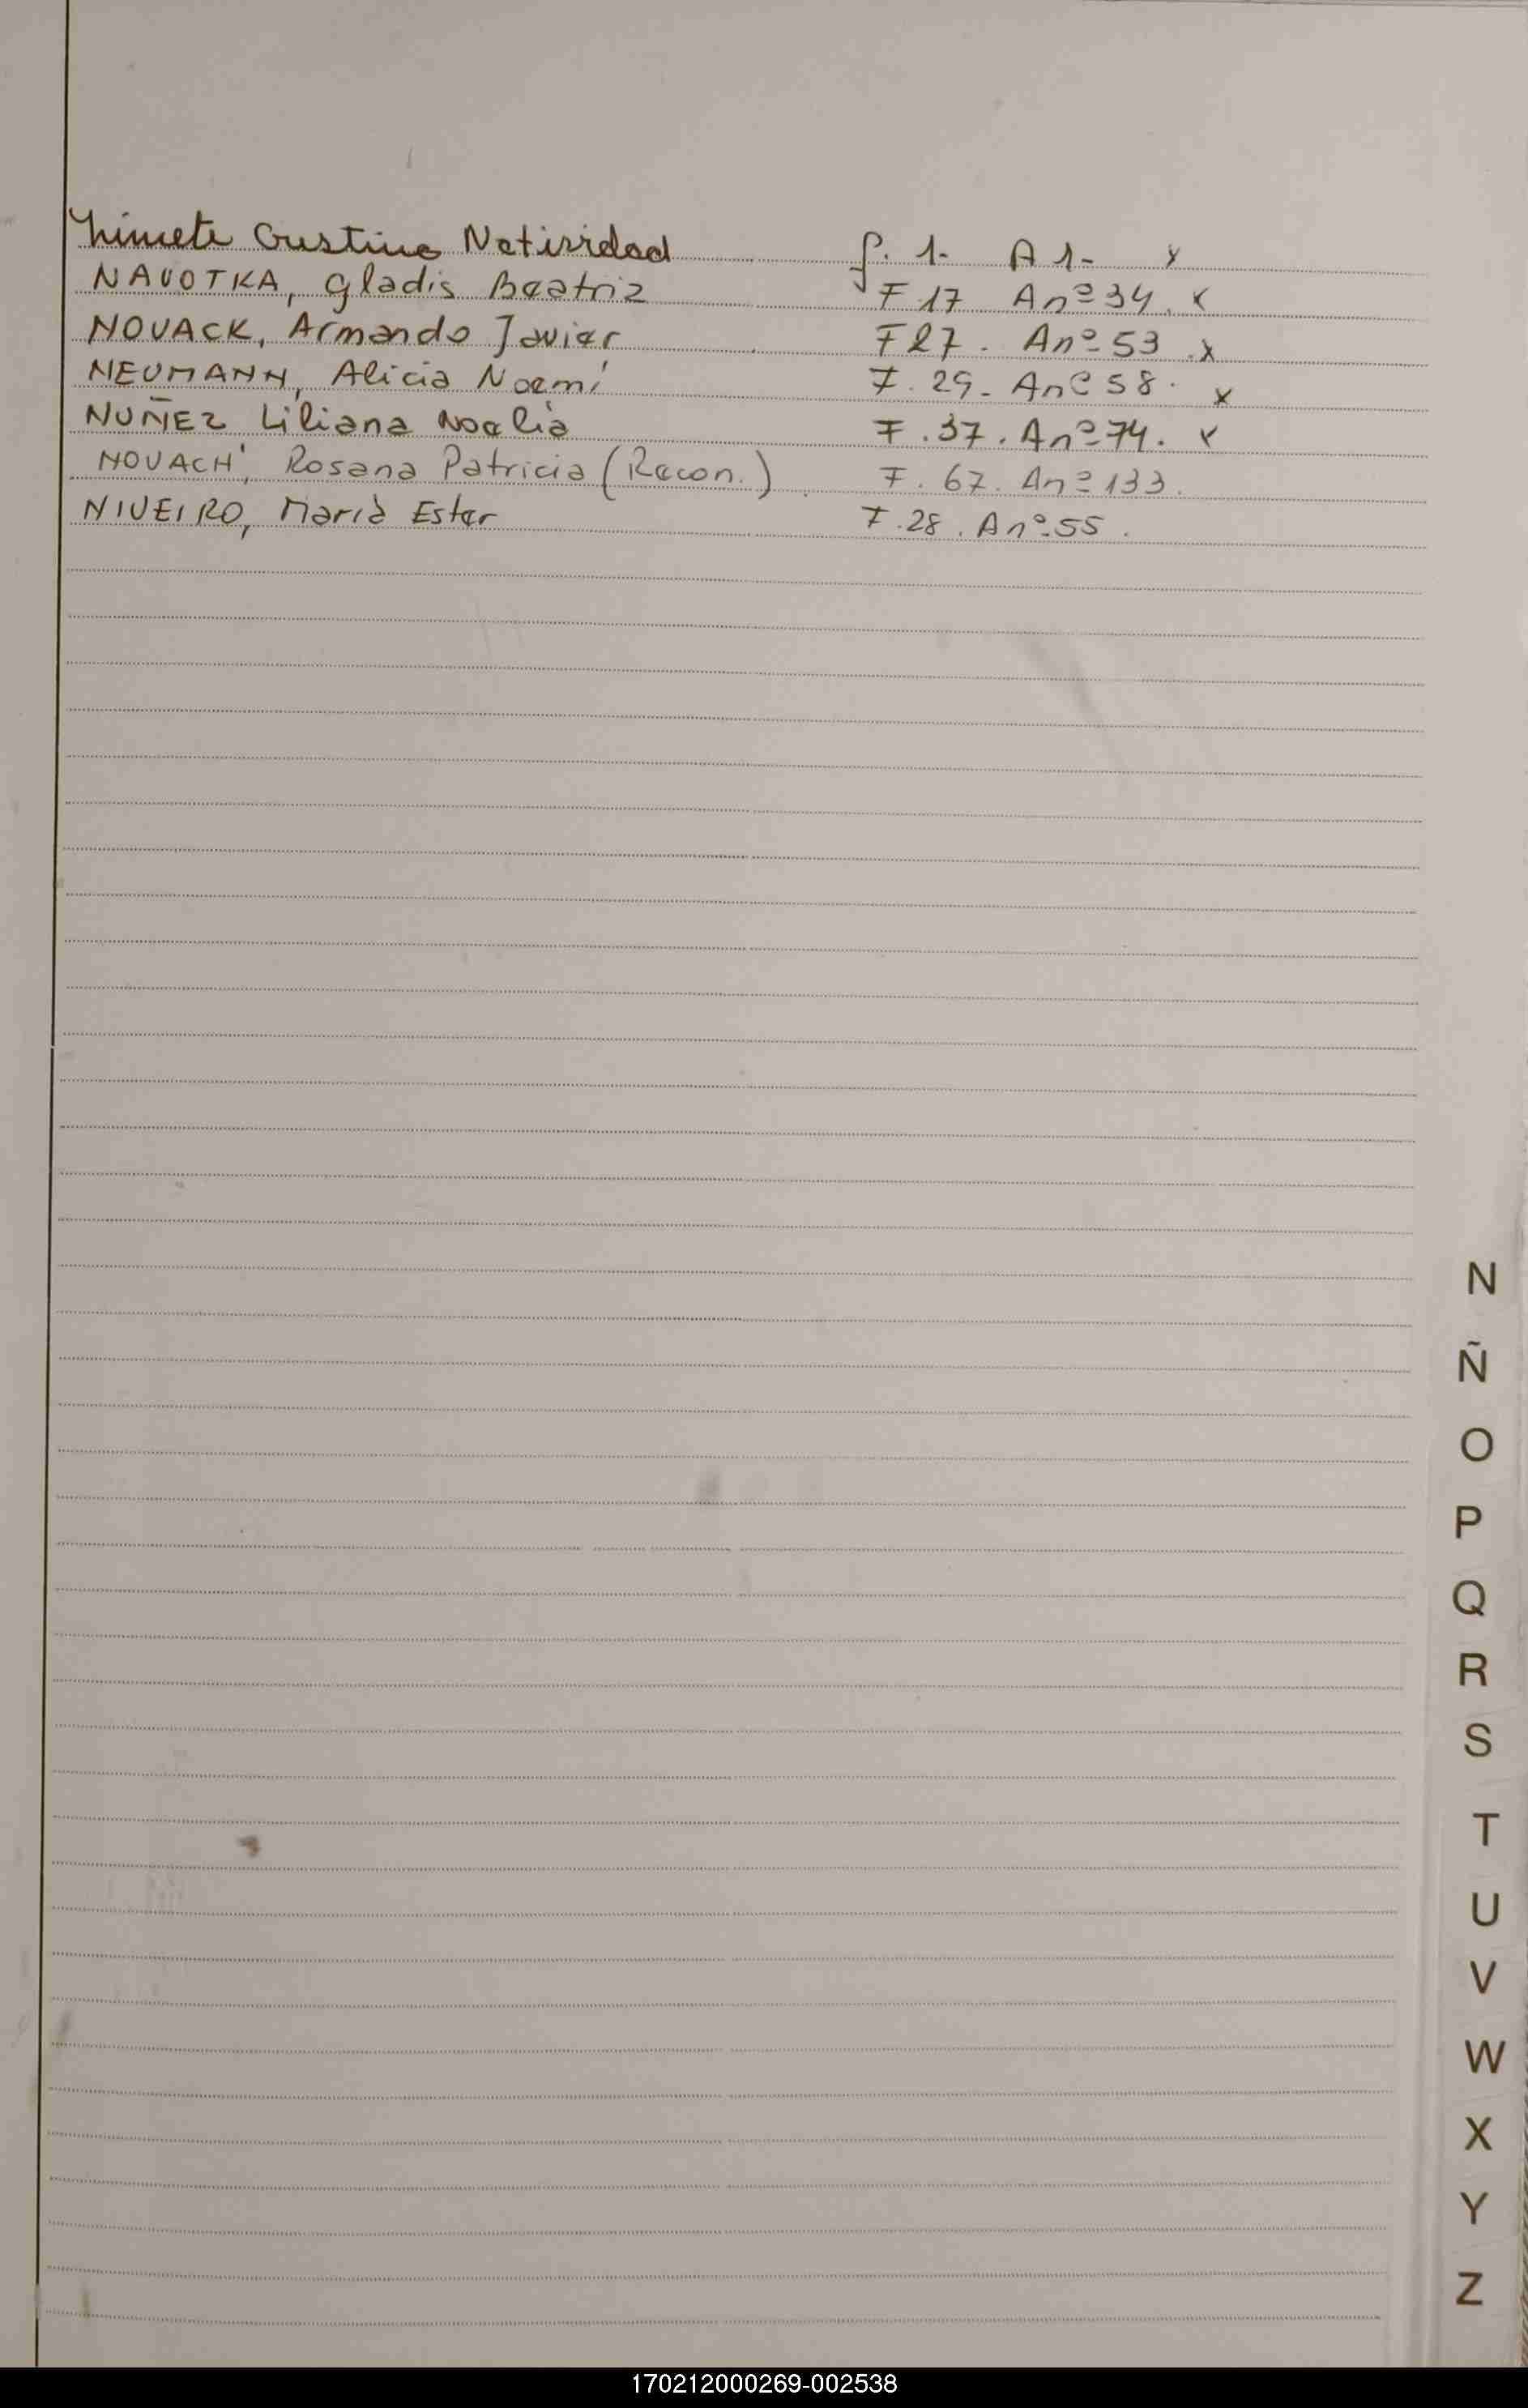 Cristina Natividad f. 1- A 1- x
NAVOTKA, Gladis Beatriz F 17 A nº 34. x
NOVACK, Armando Javier F 27. A nº 53 . x
NEUMANN, Alicia Noemí F. 29. A nº 58. x
NUÑEZ Liliana Noelia F. 37. A nº 74. x
NOVACH, Rosana Patricia (Recon.) F. 67. A nº 133.
NIVEIRO, Marià Ester F. 28. A nº 55.
N
Ñ
O
P
Q
R
S
T
U
V
W
X
Y
Z
170212000269-002538